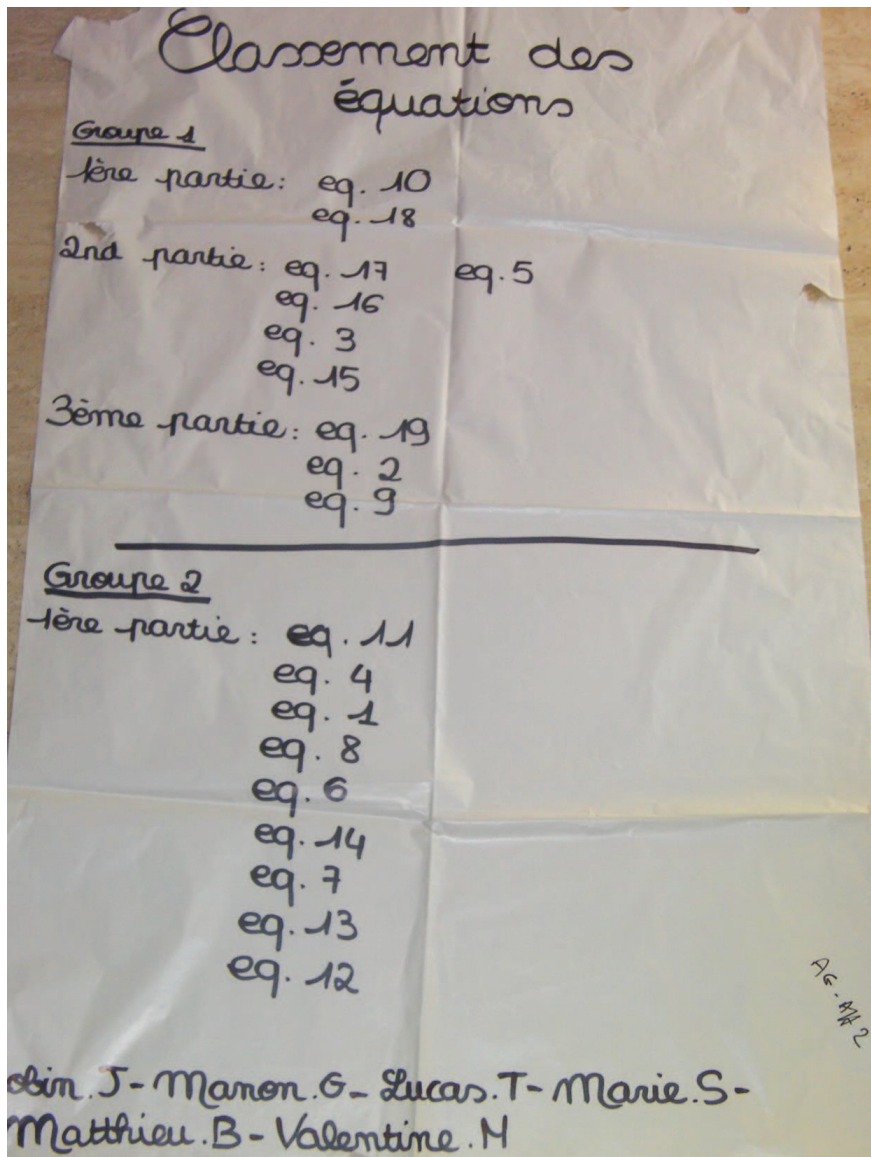 Classement des
équations
Groupe 1
1ère partie: eq. 10
eq. 18
2nd partie: eq. 17 eq. 5
eq. 16
eq. 3
eq. 15
3ème partie: eq. 19
eq. 2
eq. 9
Groupe 2
1ère partie: eq. 11
eq. 4
eq. 1
eq. 8
eq. 6
eq. 14
eq. 7
eq. 13
eq. 12
obin.J-Manon.G-Lucas.T-Marie.S-
Matthieu.B-Valentine.M